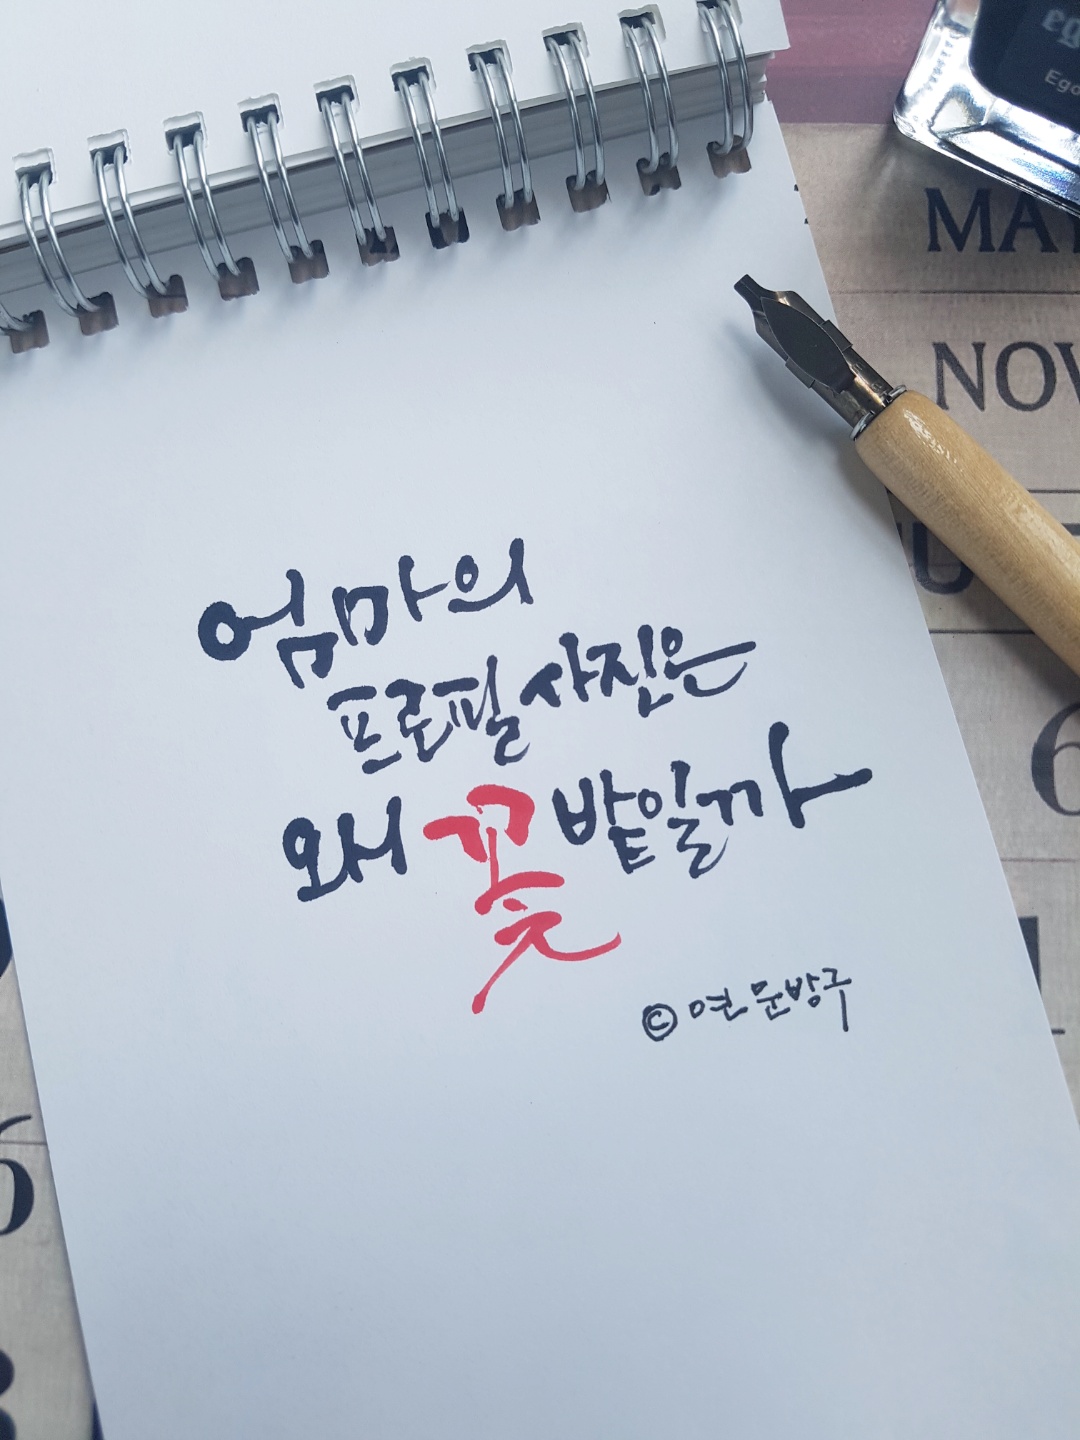 Ego
MAY
NOV
6
엄마의
프로필 사진은
왜 꽃밭일까
© 연문방구
6